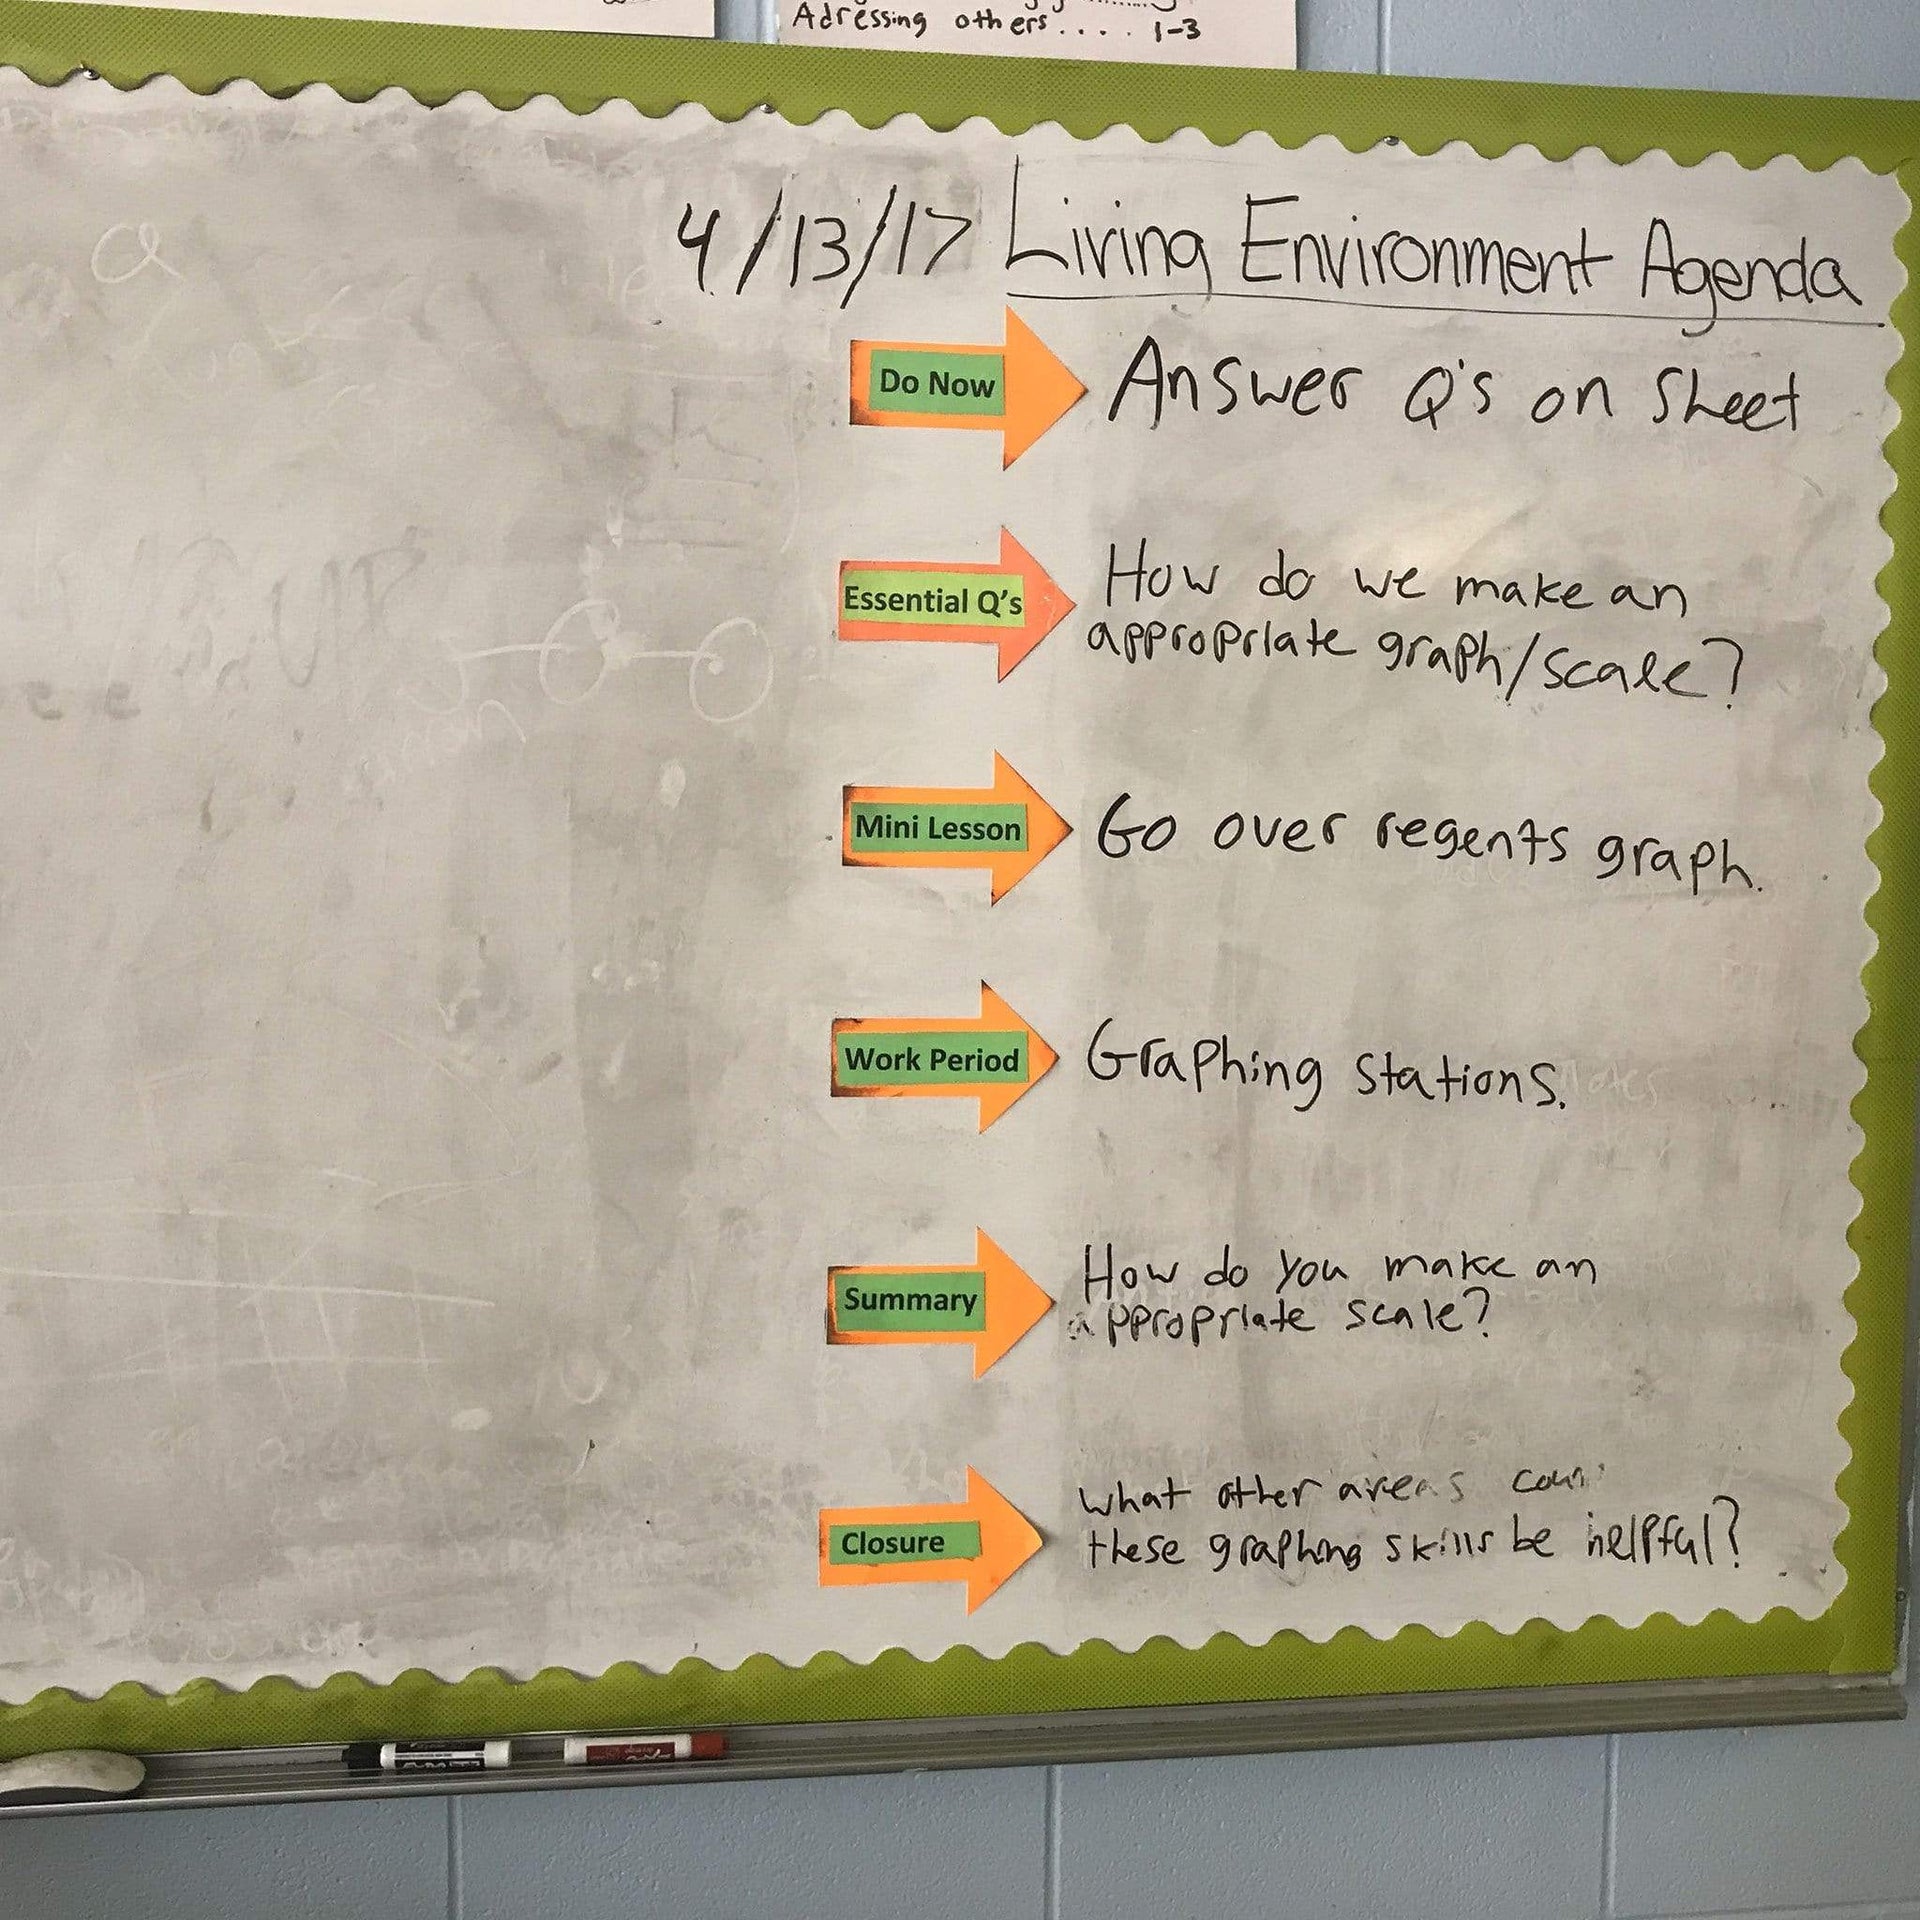 Adressing others.... 1-3
4/13/17 Living Environment Agenda
Do Now Answer Q's on sheet
Essential Q's How do we make an
appropriate graph/scale?
Mini Lesson Go over regents graph.
Work Period Graphing stations.
Summary How do you make an
appropriate scale?
Closure What other areas
these graphing skills be helpful?